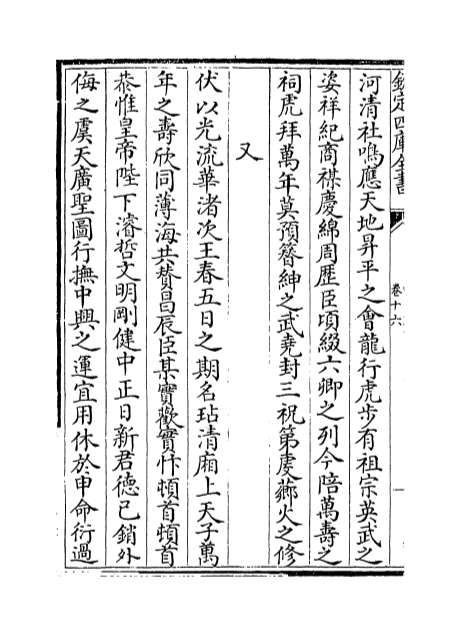 欽定四庫全書
卷十六
河清社鳴應天地昇平之會龍行虎步有祖宗英武之
姿祥紀商禖慶綿周歷臣頃綴六卿之列今陪萬壽之
祠虎拜萬年莫預簪紳之武堯封三祝第虔薌火之修
又
伏以光流華渚次王春五日之期名玷清廂上天子萬
年之壽欣同薄海共賛昌辰臣某實歡實忭頓首頓首
恭惟皇帝陛下濬哲文明剛健中正日新君德已銷外
侮之虞天廣聖圖行撫中興之運宜用休於申命衍過